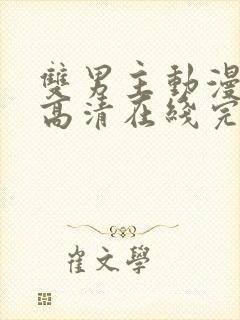 雙男主動漫
高清在綫完
崔文學